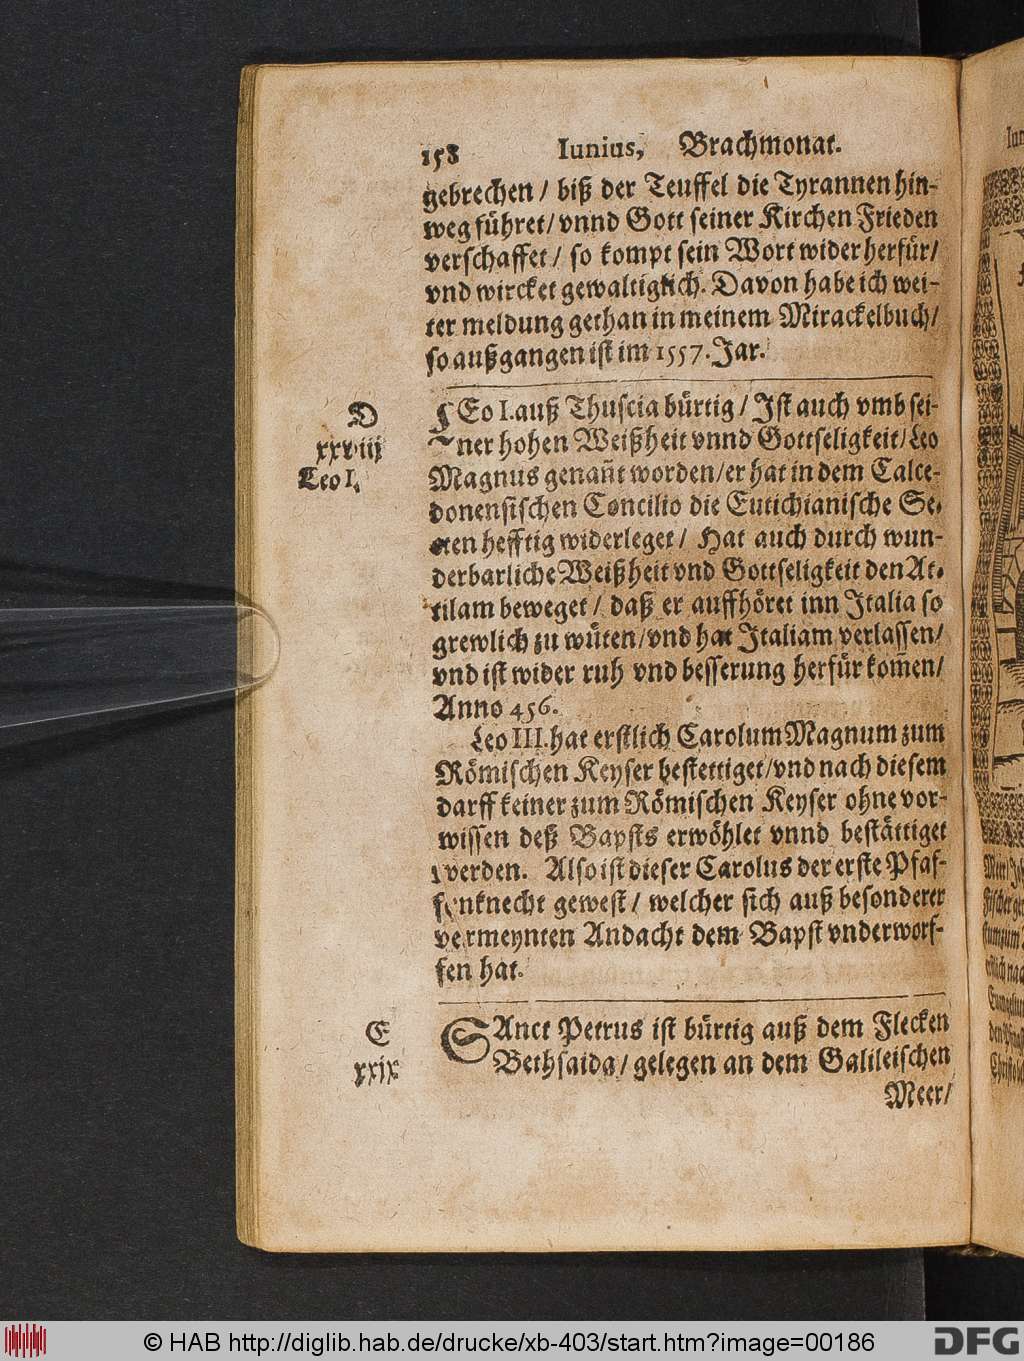 158 Iunius, Brachmonat.
gebrechen / biß der Teuffel die Tyrannen hin-
weg führet / vnnd Gott seiner Kirchen Frieden
verschaffet / so kompt sein Wort wider herfür /
vnd wircket gewaltiglich. Davon habe ich wei-
ter meldung gethan in meinem Mirackelbuch /
so außgangen ist im 1557. Jar.
D
xxviij
Leo I.
LEo I. auß Thuscia bürtig / Ist auch vmb sei-
ner hohen Weißheit vnnd Gottseligkeit / Leo
Magnus genañt worden / er hat in dem Calce-
donensischen Concilio die Eutichianische Se-
cten hefftig widerleget / Hat auch durch wun-
derbarliche Weißheit vnd Gottseligkeit den At-
tilam beweget / daß er auffhöret inn Italia so
grewlich zu wüten / vnd hat Italiam verlassen /
vnd ist wider ruh vnd besserung herfür komen /
Anno 456.
Leo III. hat erstlich Carolum Magnum zum
Römischen Keyser bestettiget / vnd nach diesem
darff keiner zum Römischen Keyser ohne vor-
wissen deß Bapsts erwöhlet vnnd bestättiget
werden. Also ist dieser Carolus der erste Pfaf-
fenknecht gewest / welcher sich auß besonderer
vermeynten Andacht dem Bapst vnderworf-
fen hat.
E
xxix
SAnct Petrus ist bürtig auß dem Flecken
Bethsaida / gelegen an dem Galileischen
Meer /
© HAB http://diglib.hab.de/drucke/xb-403/start.htm?image=00186
DFG